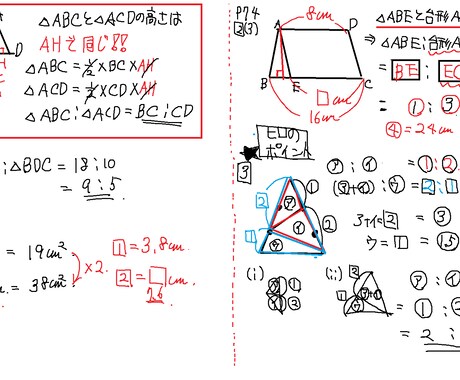 △ABCと△ACDの高さは
AHで同じ!!
△ABC = 1/2 × BC × AH
△ACD = 1/2 × CD × AH
△ABC : △ACD = BC : CD
D
: △BDC = 18 : 10
= 9 : 5
= 19cm²
= 38cm²
×2.
1 = 3.8cm
2 = □cm
7.6
P74
2(3)
8cm
A
D
B
E
C
□cm
16cm
△ABEと台形A
⇒ △ABE : 台形A
BE : EC
= ① : ③
④ = 24cm
ヒロの
ポイント
3
ア : イ = 1 : 2
(ア+イ) : ウ = 2 : 1
ア+イ = 2 = ③
ウ = 1 = 1.5
ア
イ
ウ
①
②
2
1
(i)
(ii)
ア : イ
= 1 :
= 2 :